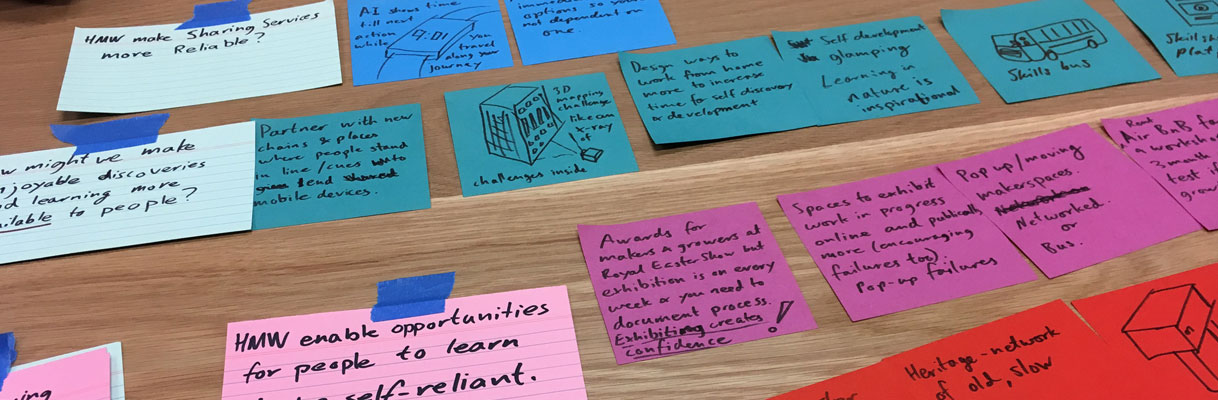 HMW make Sharing Services
more Reliable?
AI shows time
till next
action
while
9:01
you
travel
along your
journey
options so your
not dependent on
one.
might've make
enjoyable discoveries
and learning more
available to people?
Partner with new
chains & places
where people stand
in line/cues to
lend
mobile devices.
3D
mapping
challenge
like an
x-ray
of
challenges inside
Design ways to
work from home
more to increase
time for self discovery
or development
Self development
glamping
Learning in
nature is
inspirational
Skills bus
HMW enable opportunities
for people to learn
self-reliant.
Awards for
makers & growers at
Royal Easter Show but
exhibition is on every
week & you need to
document process.
Exhibiting creates
confidence!
Spaces to exhibit
work in progress
online and publically
more (encouraging
failures too).
Pop-up failures
Pop up/moving
makerspaces.
Networked.
or
Bus.
Rent
Air BnB fo
a worksho
3 month
test if
grow
Heritage-network
of old, slow